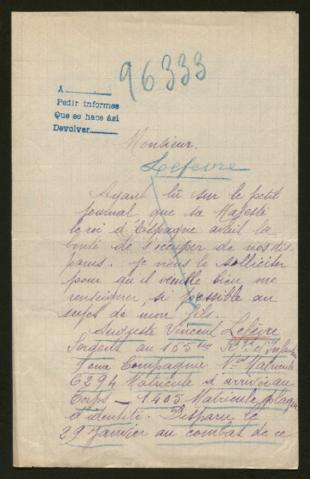 96333
A
Pedir informes
Que se hace así
Devolver
Monsieur.
Lefevre
Ayant lû sur le petit
journal que sa Majesté
le roi d'Espagne avait la
bonté de s'occuper de nos dis
parus. je viens le solliciter
pour qu'il veuille bien me
renseigner, si possible au
sujet de mon fils.
Auguste Vincent Lefèvre
Sergent au 155me
9eme Compagnie Matricule
6294 Matricule d'arrivée au
Corps - 1405 Matricule plaque
d'identité. Disparu le
29 Janvier au combat de ce